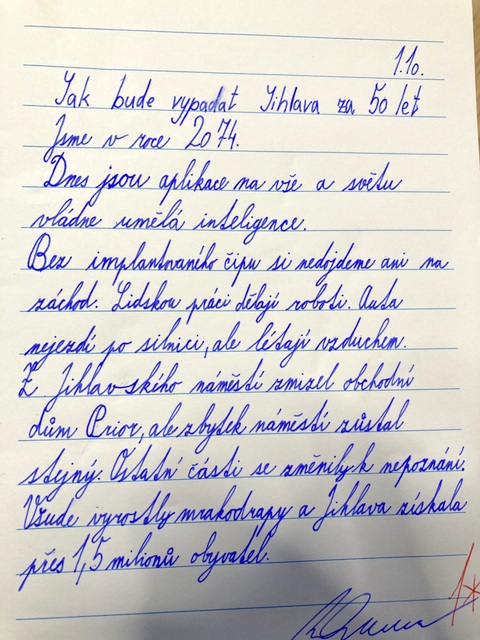 1.10.
Jak bude vypadat Jihlava za 50 let
Jsme v roce 2074.
Dnes jsou aplikace na vše a světu
vládne umělá inteligence.
Bez implantovaného čipu si nedojdeme ani na
záchod. Lidskou práci dělají roboti. Auta
nejezdí po silnici, ale létají vzduchem.
Z Jihlavského náměstí zmizel obchodní
dům Prior, ale zbytek náměstí zůstal
stejný. Ostatní části se změnily k nepoznání.
Všude vyrostly mrakodrapy a Jihlava získala
přes 1,5 milionů obyvatel.
1*